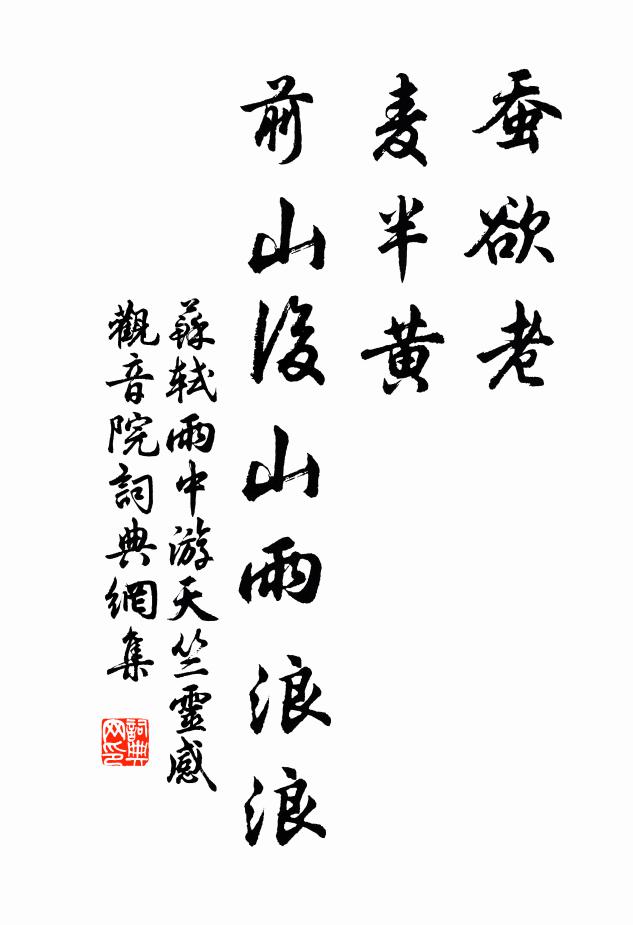 蚕欲老
麦半黄
前山后山雨浪浪
蘇軾雨中游天竺靈感
觀音院詞典網集
詞典网印